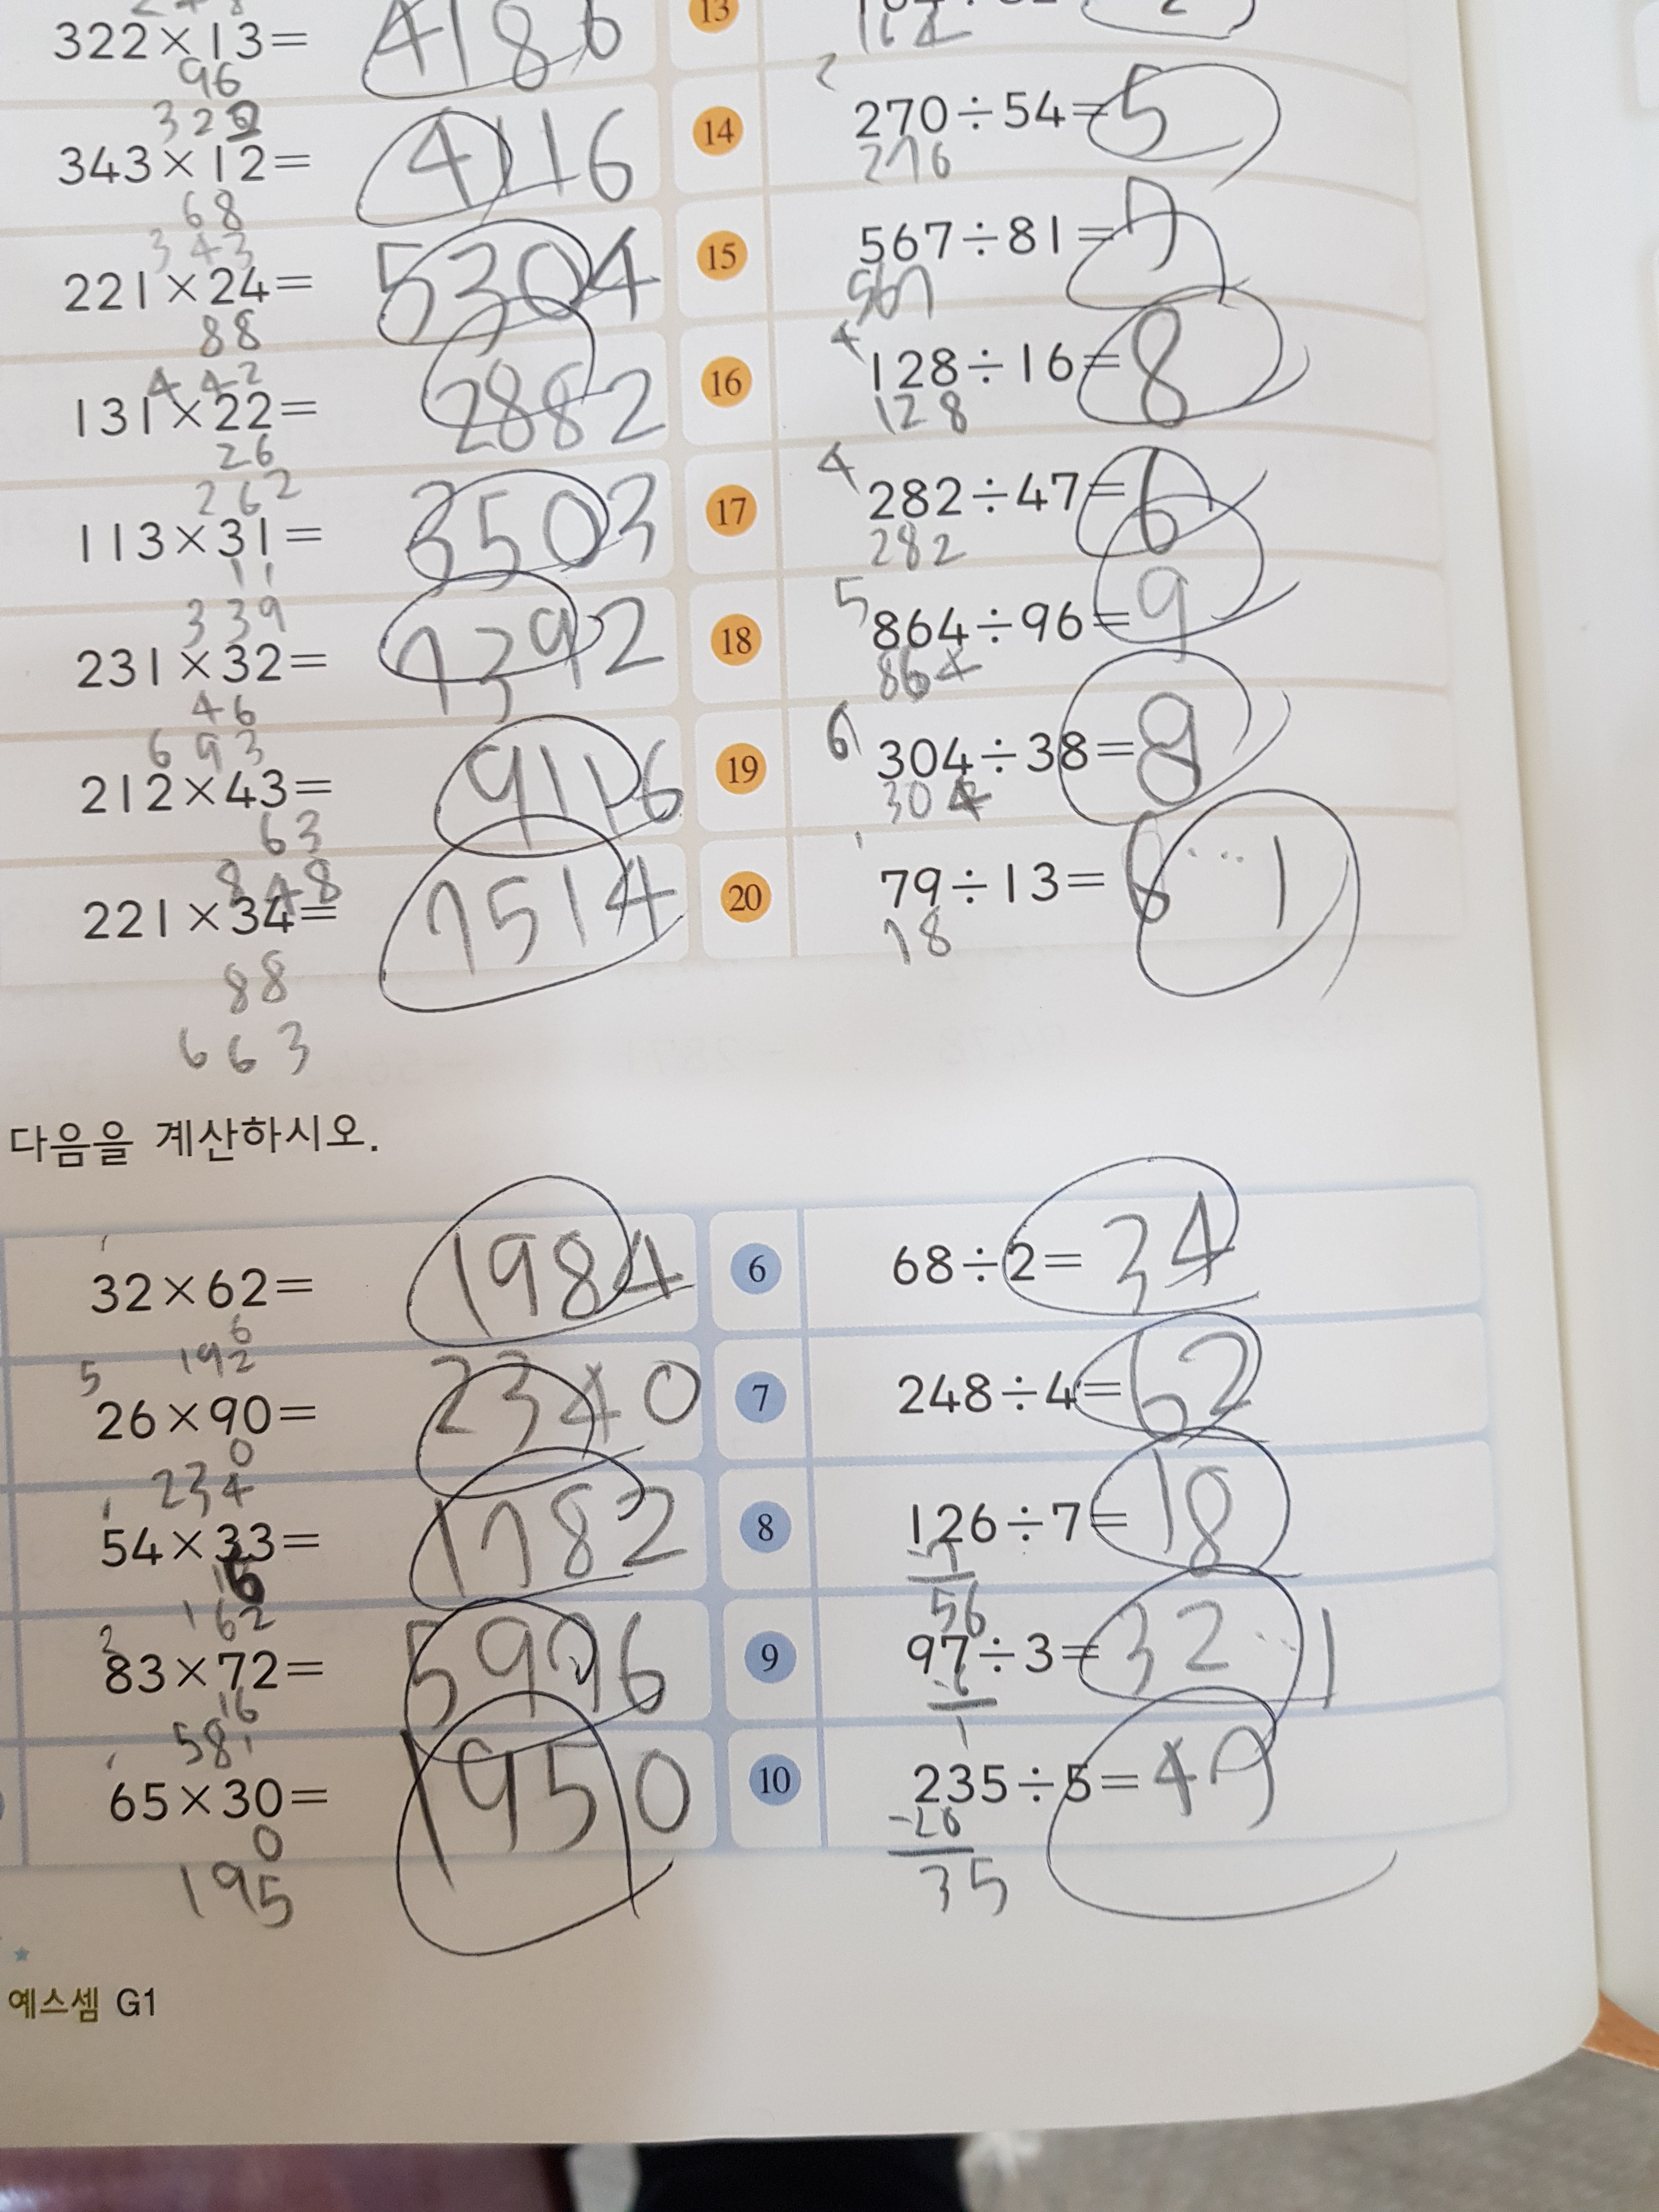 322×13= 4186
96
322
343×12= 4116
68
343
221×24= 5304
88
442
131×22= 2882
26
262
113×31= 3503
11
339
231×32= 7392
46
693
212×43= 9116
63
848
221×34= 7514
88
663
13
164
14 270÷54=5
2
276
15 567÷81=7
567
16 128÷16=8
4
128
17 282÷47=6
4
282
18 864÷96=9
5
864
19 304÷38=8
6
304
20 79÷13=6…1
78
다음을 계산하시오.
32×62= 1984
6
192
26×90= 2340
5
0
234
54×33= 1782
1
16
162
83×72= 5976
2
16
581
65×30= 1950
0
195
6 68÷2=34
7 248÷4=62
8 126÷7=18
-7
56
9 97÷3=32…1
-6
1
10 235÷5=47
-20
35
예스셈 G1